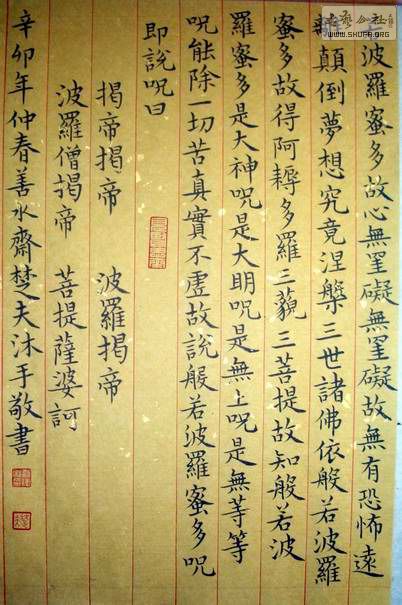 波羅蜜多故心無罣礙無罣礙故無有恐怖遠
離顛倒夢想究竟涅槃三世諸佛依般若波羅
蜜多故得阿耨多羅三藐三菩提故知般若波
羅蜜多是大神呪是大眀呪是無上呪是無等等
呪能除一切苦真實不虛故說般若波羅蜜多呪
即說呪曰
揭帝揭帝 波羅揭帝
波羅僧揭帝 菩提薩婆訶
辛卯年仲春善水齋楚夫沐手敬書
www.SHUFA.ORG